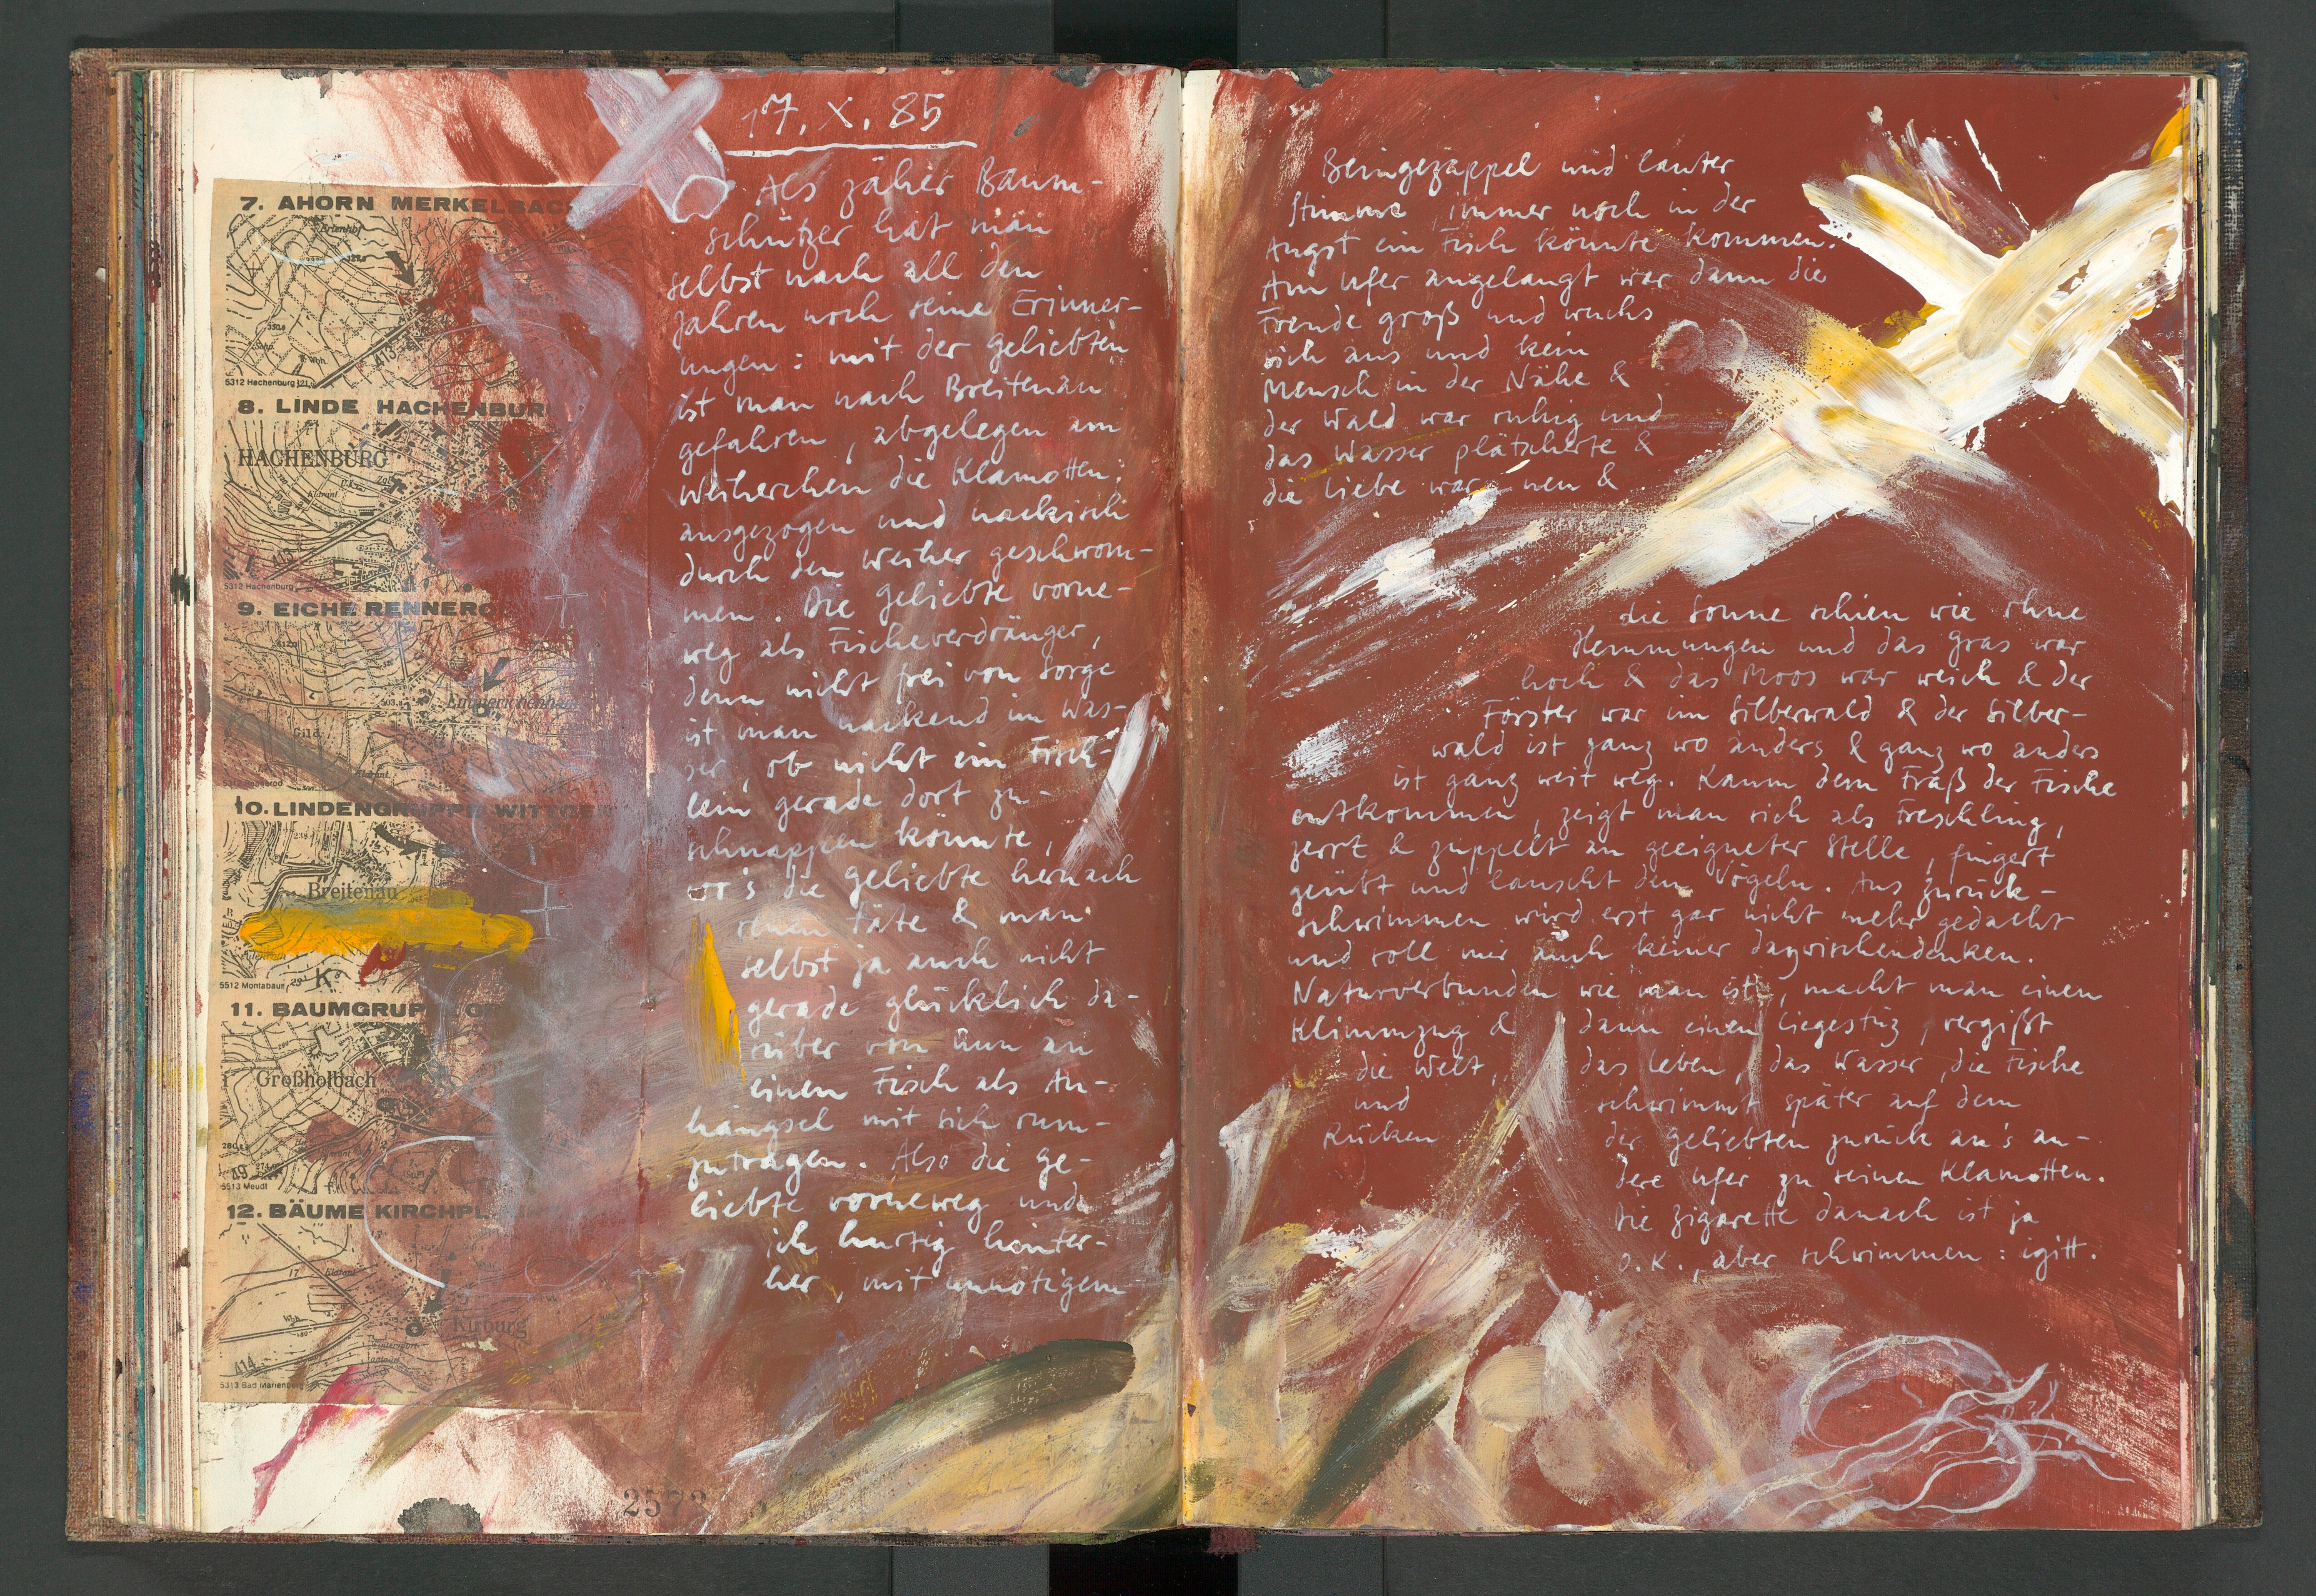 7. AHORN MERKELBAC
Erlenhof
413
5312 Hachenburg
8. LINDE HACHENBUR
HACHENBURG
5312 Hachenburg
9. EICHE RENNERO
Emmerichenhain
10. LINDENGRUPPE WITTGE
Breitenau
5512 Montabaur
11. BAUMGRUP
Großholbach
49
5513 Meudt
12. BÄUME KIRCHPL
Kirburg
414
5313 Bad Marienberg
2572
17. X. 85
Als zäher Baum-
schützer hat man
selbst nach all den
Jahren noch seine Erinner-
ungen: mit der Geliebten
ist man nach Breitenau
gefahren, abgelegen am
Weiherchen die Klamotten:
ausgezogen und nackisch
durch den Weiher geschwom-
men. Die Geliebte vorne-
weg als Fischeverdränger,
denn nicht frei von Sorge
ist man nackend im Was-
ser, ob nicht ein Fisch-
lein gerade dort zu-
schnappen könnte,
wo's die Geliebte hernach
reuen täte & man
selbst ja auch nicht
gerade glücklich da-
rüber von nun an
einen Fisch als An-
hängsel mit sich rum-
zutragen. Also die Ge-
liebte vorneweg und
ich hurtig hinter-
her, mit unnötigem
Beingezappel und lauter
Stimme, immer noch in der
Angst ein Fisch könnte kommen.
Am Ufer angelangt war dann die
Freude groß und wuchs
sich aus und kein
Mensch in der Nähe &
der Wald war ruhig und
das Wasser plätscherte &
die Liebe war neu &
die Sonne schien wie ohne
Hemmungen und das Gras war
hoch & das Moos war weich & der
Förster war im Silberwald & der Silber-
wald ist ganz wo anders & ganz wo anders
ist ganz weit weg. Kaum dem Fraß der Fische
entkommen, zeigt man sich als Freschling,
zerrt & zuppelt an geeigneter Stelle, fingert
geübt und lauscht den Vögeln. Ans Zurück-
schwimmen wird erst gar nicht mehr gedacht
und soll mir auch keiner dazwischendenken.
Naturverbunden wie man ist, macht man einen
Klimmzug & dann einen Liegestütz, vergißt
die Welt, das Leben, das Wasser, die Fische
und schwimmt später auf dem
Rücken der Geliebten zurück an's an-
dere Ufer zu seinen Klamotten.
Die Zigarette danach ist ja
O.K., aber schwimmen: igitt.